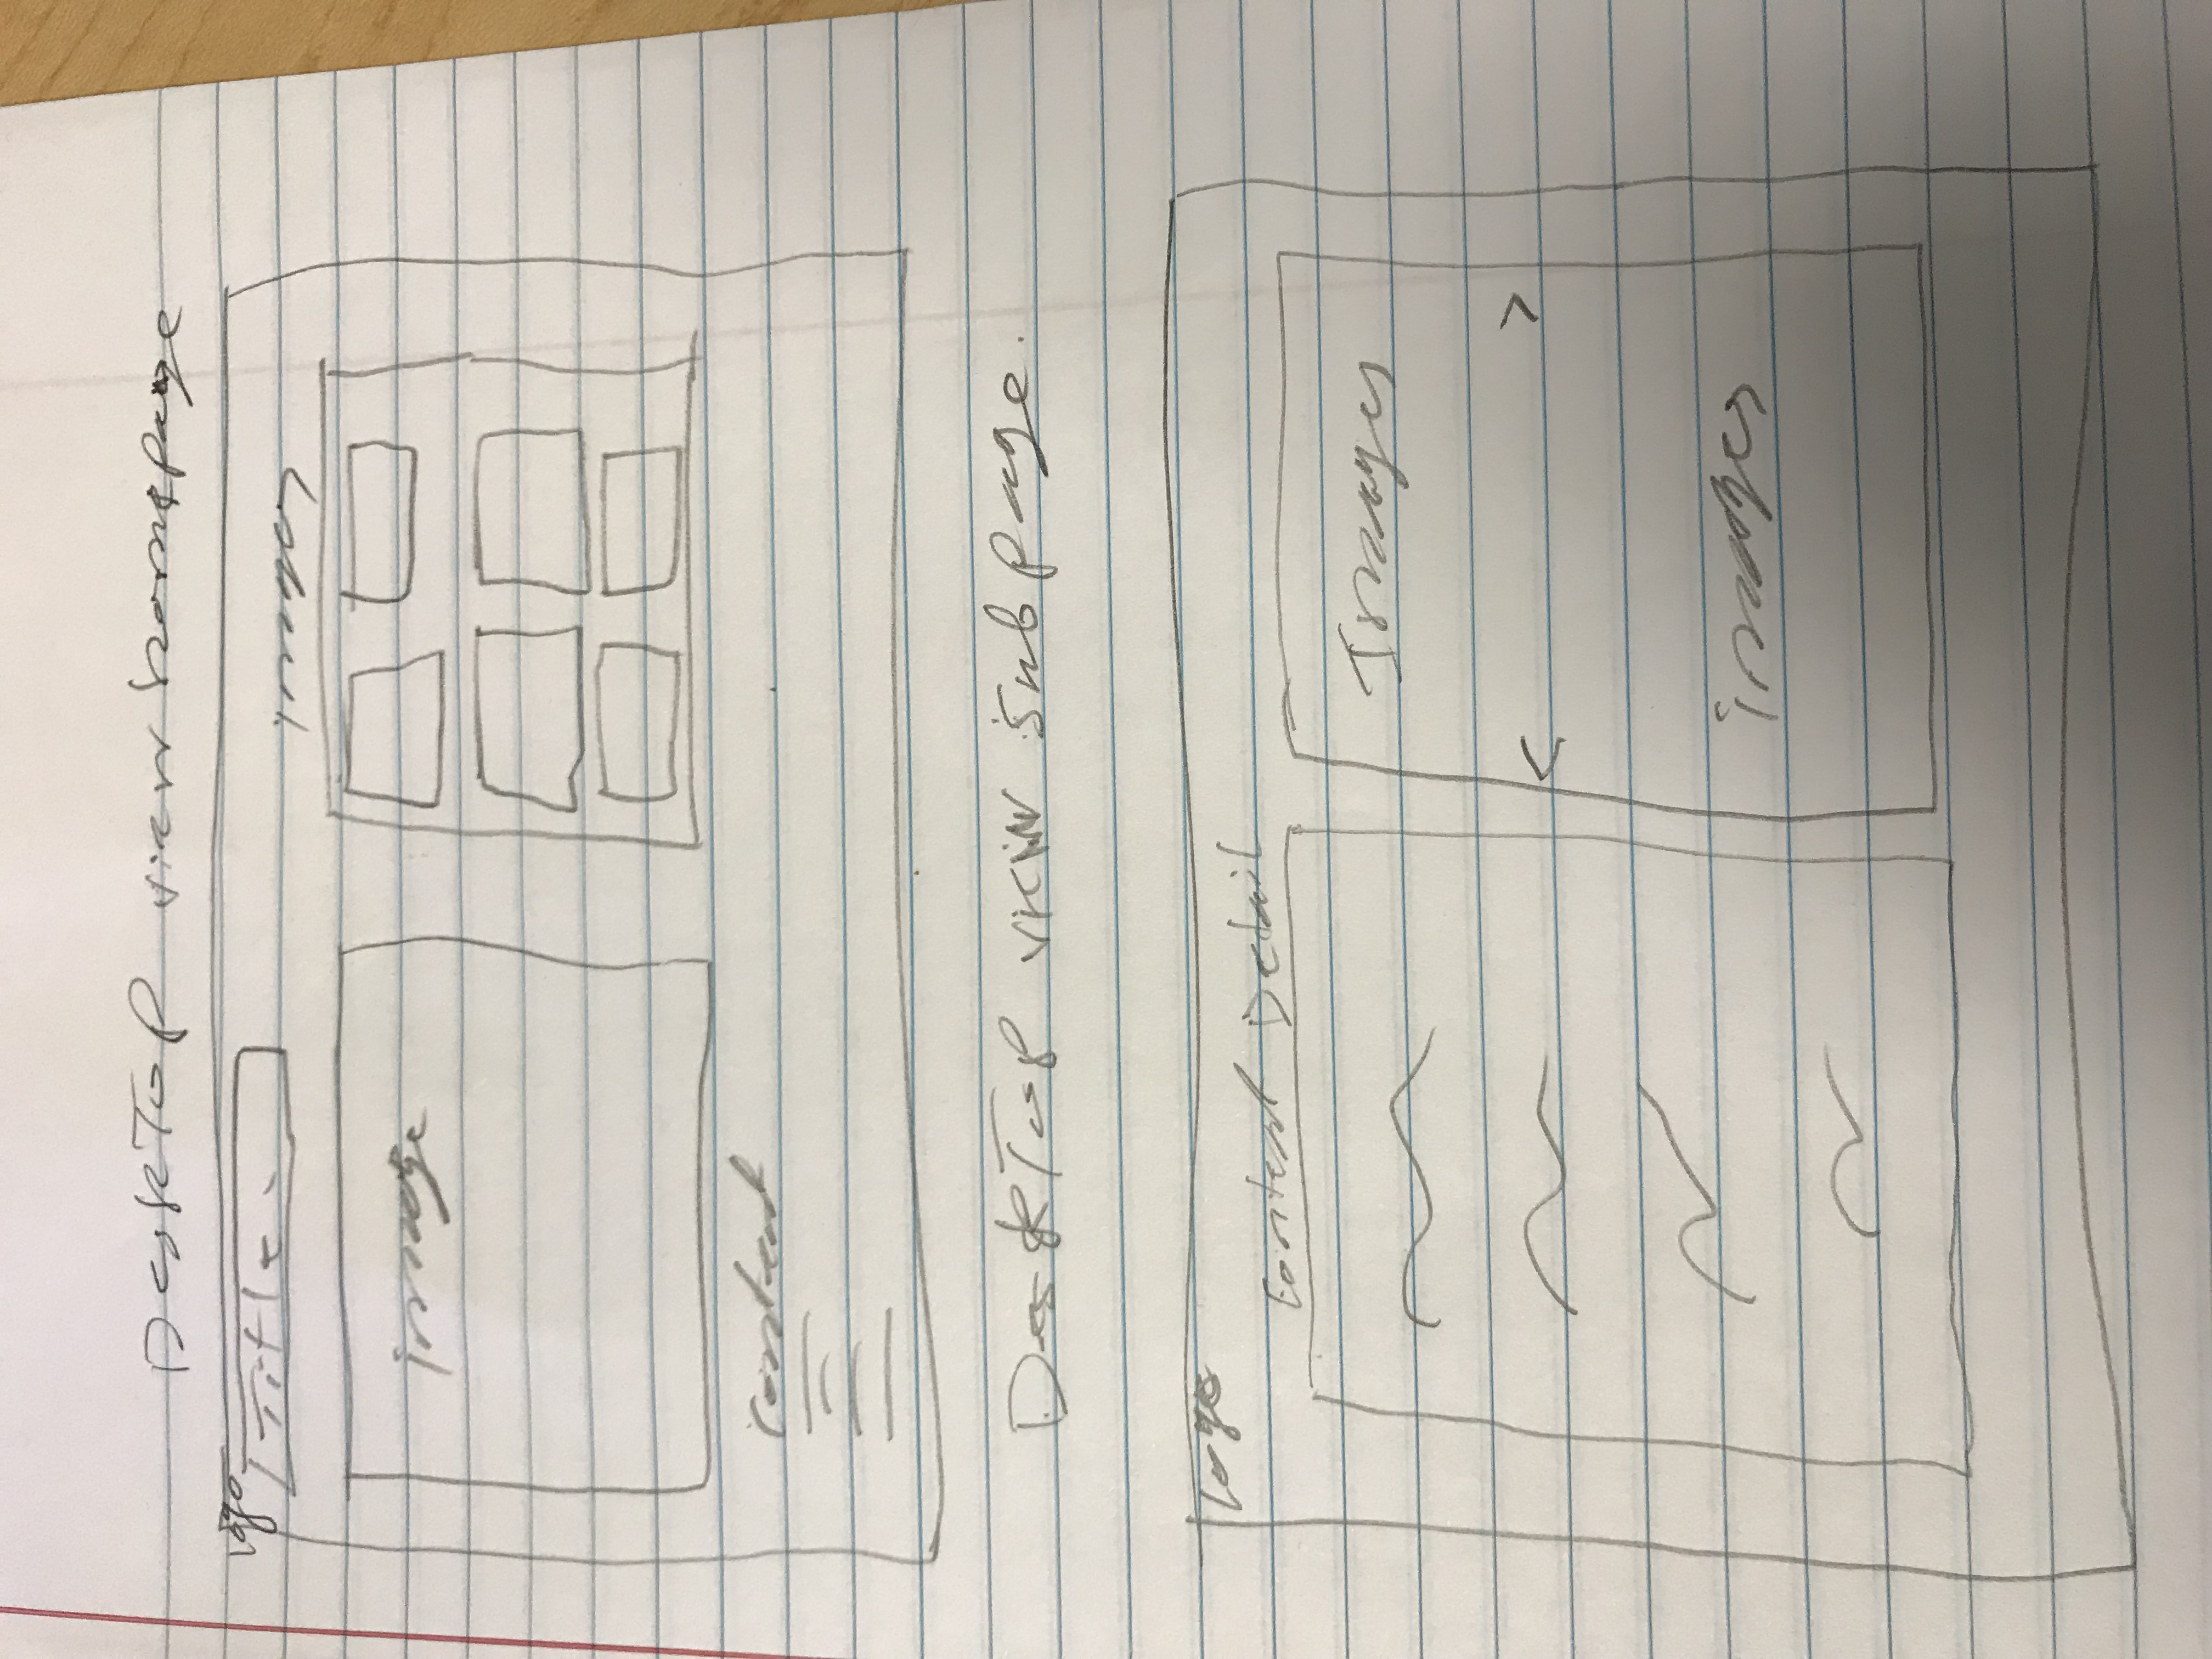 DeskTop view homepage
logo
Title
images
image
Content
DeskTop view subpage.
logo
Content Detail
Images
<
>
images